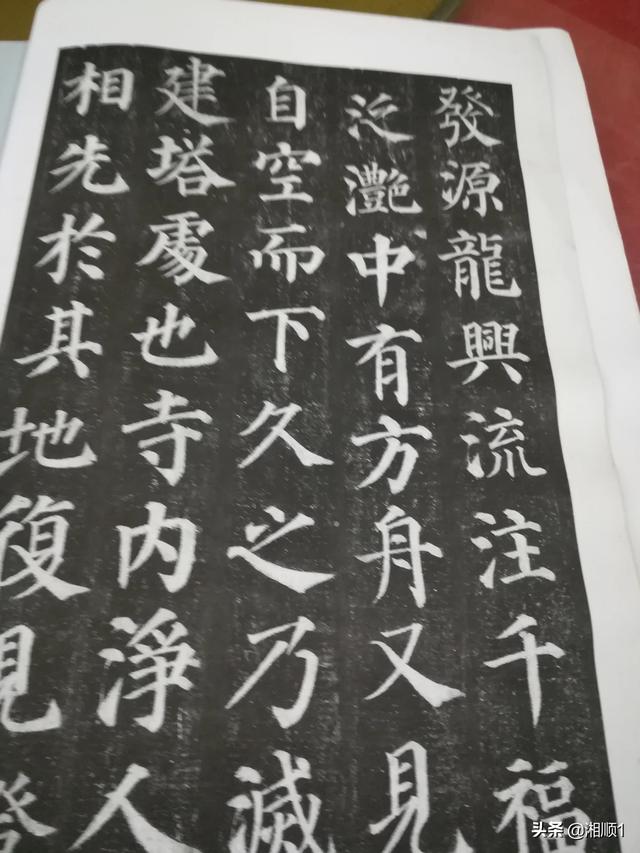 發源龍興流注千福
泛灧中有方舟又見
自空而下久之乃滅
建塔處也寺內淨人
相先於其地復見燈
头条 @湘顺1